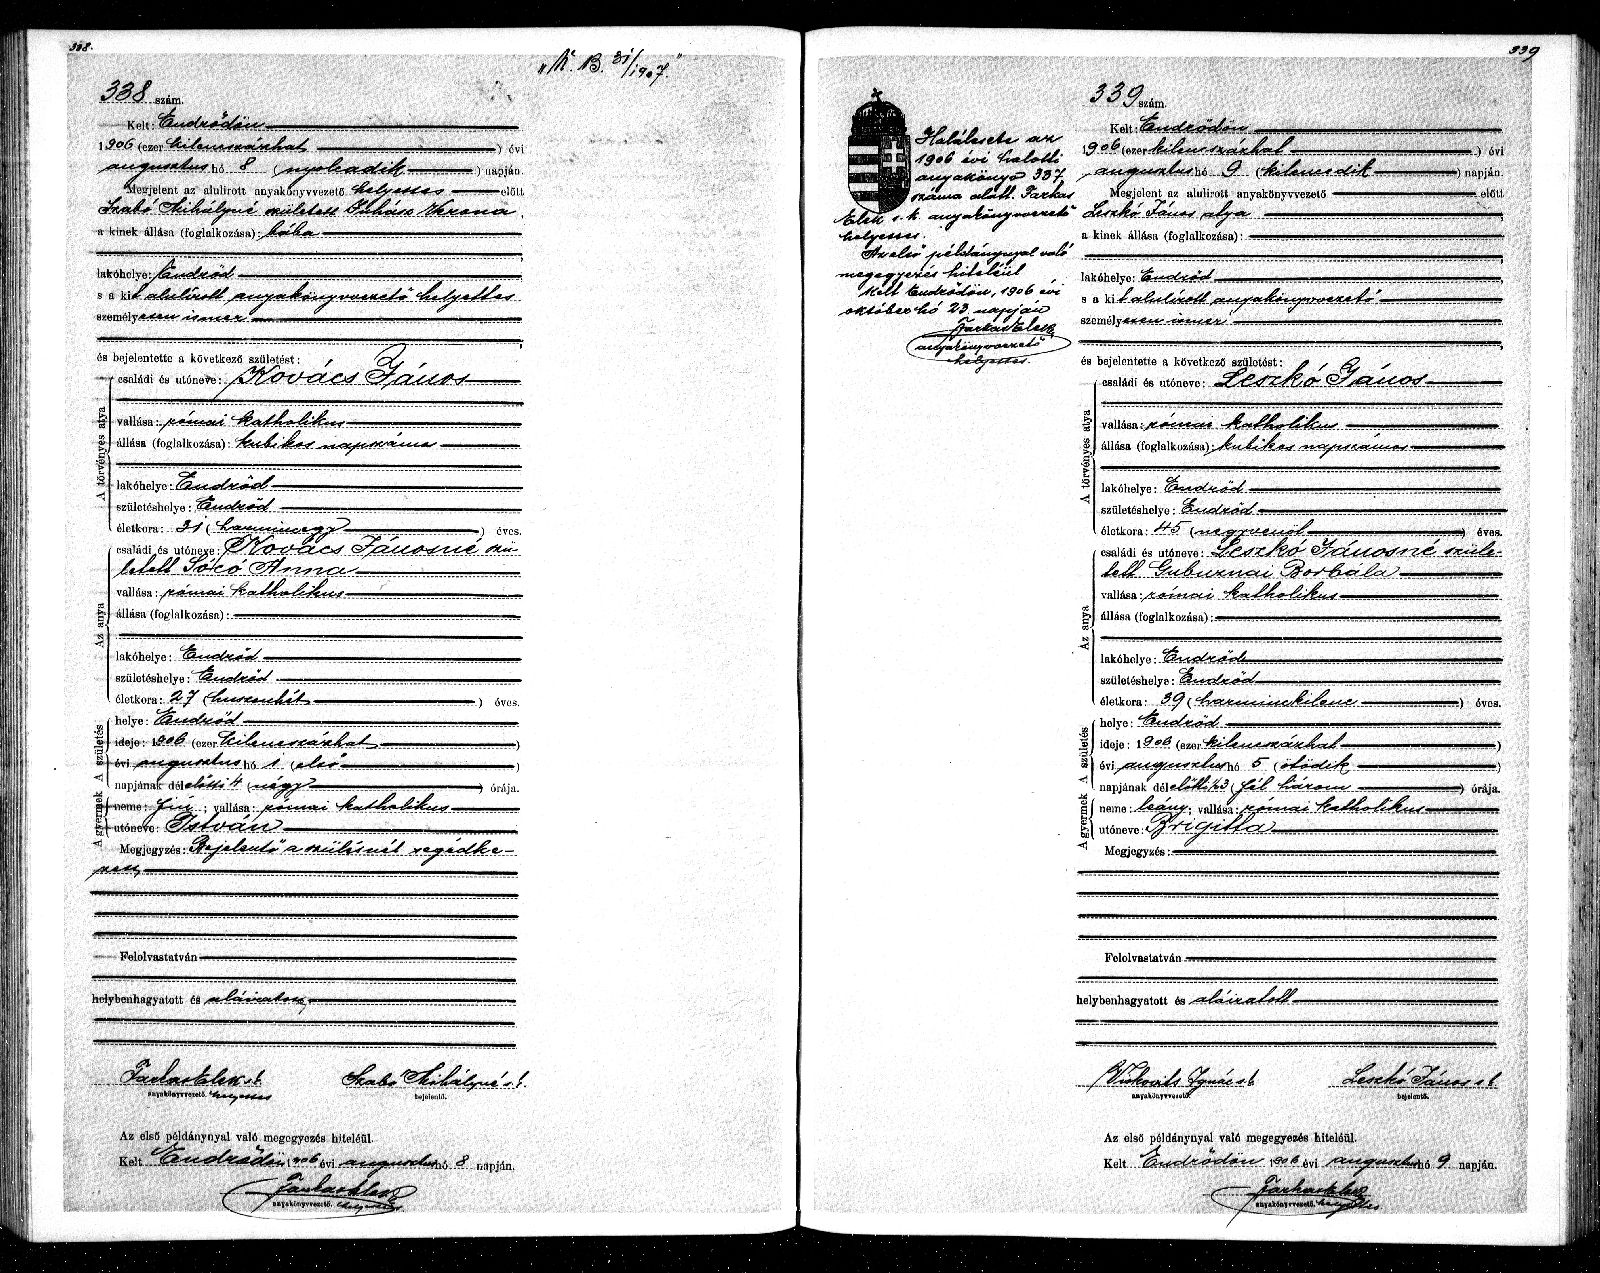 338.
„K. B. 31/1907.”
338 szám.
Kelt: Endrődön
1906 (ezer kilenczszázhat ) évi
augusztus hó 8 (nyolcadik ) napján.
Megjelent az alulirott anyakönyvvezető helyettes előtt
Szabó Mihályné született Juhász Verona,
a kinek állása (foglalkozása): bába
lakóhelye: Endrőd
s a kit alulírott anyakönyvvezető helyettes
személyesen ismer
és bejelentette a következő születést:
A törvényes atya
családi és utóneve: Kovács János
vallása: római katholikus
állása (foglalkozása): kubikos napszámos
lakóhelye: Endrőd
születéshelye: Endrőd
életkora: 31 (harminegy ) éves.
Az anya
családi és utóneve: Kovács Jánosné szü-
letett Soczó Anna
vallása: római katholikus
állása (foglalkozása):
lakóhelye: Endrőd
születéshelye: Endrőd
életkora: 27 (huszonhét ) éves.
A születés
helye: Endrőd
ideje: 1906 (ezer kilenczszázhat )
évi augusztus hó 1 (első )
napjának délelőtti 4 (négy ) órája.
A gyermek
neme: fiú; vallása: római katholikus
utóneve: István
Megjegyzés: Bejelentő a szülésnél segédke-
zett
Felolvastatván
helybenhagyatott és aláíratott
Farkas Elek s.k. Szabó Mihályné s.k.
anyakönyvvezető. helyettes bejelentő.
Az első példánynyal való megegyezés hiteléül.
Kelt Endrődön 1906 évi augusztus hó 8 napján.
Farkas Elek
anyakönyvvezető. helyettes
339
Halálesete az
1906 évi halotti
anyakönyv 337
száma alatt. Farkas
Elek s.k. anyakönyvvezető
helyettes.
Az első példánynyal való
megegyezés hiteléül
Kelt Endrődön, 1906 évi
október hó 23 napján
Farkas Elek
anyakönyvvezető
helyettes.
339 szám.
Kelt: Endrődön
1906 (ezer kilenczszázhat ) évi
augusztus hó 9 (kilencedik ) napján.
Megjelent az alulirott anyakönyvvezető előtt
Leszkó János atya
a kinek állása (foglalkozása):
lakóhelye: Endrőd
s a kit alulírott anyakönyvvezető
személyesen ismer
és bejelentette a következő születést:
A törvényes atya
családi és utóneve: Leszkó János
vallása: római katholikus
állása (foglalkozása): kubikos napszámos
lakóhelye: Endrőd
születéshelye: Endrőd
életkora: 45 (negyvenöt ) éves.
Az anya
családi és utóneve: Leszkó Jánosné szüle-
tett Gubuznai Borbála
vallása: római katholikus
állása (foglalkozása):
lakóhelye: Endrőd
születéshelye: Endrőd
életkora: 39 (harminckilenc ) éves.
A születés
helye: Endrőd
ideje: 1906 (ezer kilenczszázhat )
évi augusztus hó 5 (ötödik )
napjának délelőtti ½3 (fél három ) órája.
A gyermek
neme: leány; vallása: római katholikus
utóneve: Brigitta
Megjegyzés:
Felolvastatván
helybenhagyatott és aláíratott
Vickovits Ignác s.k. Leszkó János s.k.
anyakönyvvezető. bejelentő.
Az első példánynyal való megegyezés hiteléül.
Kelt Endrődön 1906 évi augusztus hó 9 napján.
Farkas Elek
anyakönyvvezető. helyettes